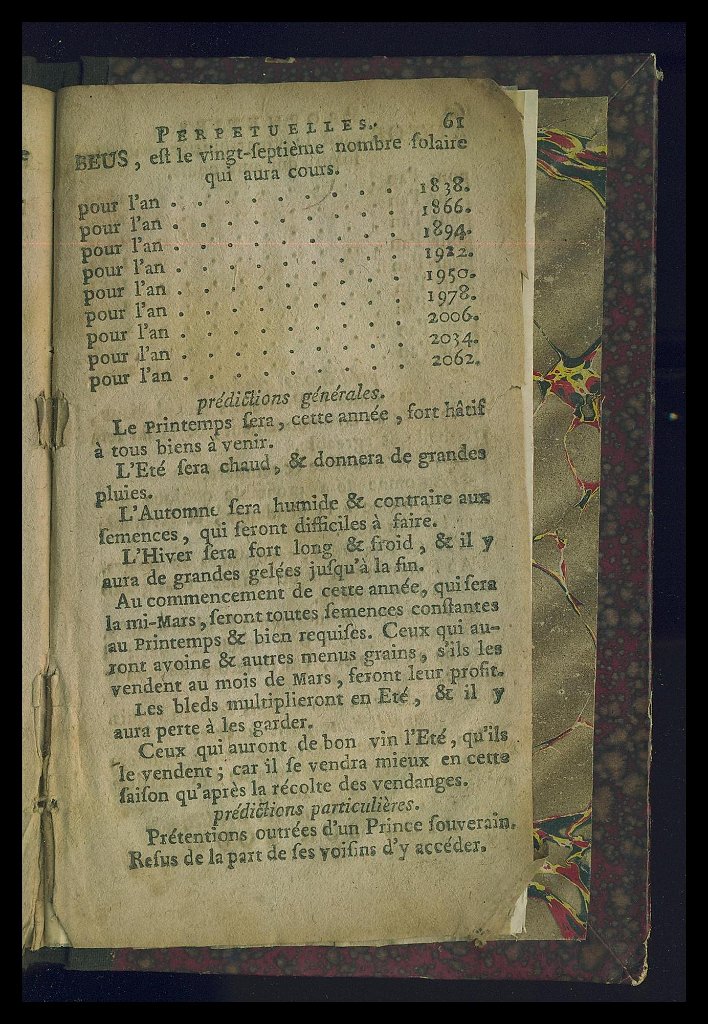 PERPETUELLES. 61
BEUS, eſt le vingt-ſeptième nombre ſolaire
qui aura cours.
pour l'an . . . . . . . . . 1838.
pour l'an . . . . . . . . . 1866.
pour l'an . . . . . . . . . 1894.
pour l'an . . . . . . . . . 1922.
pour l'an . . . . . . . . . 1950.
pour l'an . . . . . . . . . 1978.
pour l'an . . . . . . . . . 2006.
pour l'an . . . . . . . . . 2034.
pour l'an . . . . . . . . . 2062.
prédictions générales.
Le Printemps ſera, cette année, fort hâtif
à tous biens à venir.
L'Eté ſera chaud, & donnera de grandes
pluies.
L'Automne ſera humide & contraire aux
ſemences, qui ſeront difficiles à faire.
L'Hiver ſera fort long & froid, & il y
aura de grandes gelées juſqu'à la fin.
Au commencement de cette année, qui ſera
la mi-Mars, ſeront toutes ſemences conſtantes
au Printemps & bien requiſes. Ceux qui au-
ront avoine & autres menus grains, s'ils les
vendent au mois de Mars, feront leur profit.
Les bleds multiplieront en Eté, & il y
aura perte à les garder.
Ceux qui auront de bon vin l'Eté, qu'ils
le vendent; car il ſe vendra mieux en cette
ſaiſon qu'après la récolte des vendanges.
prédictions particulières.
Prétentions outrées d'un Prince ſouverain.
Refus de la part de ſes voiſins d'y accéder.